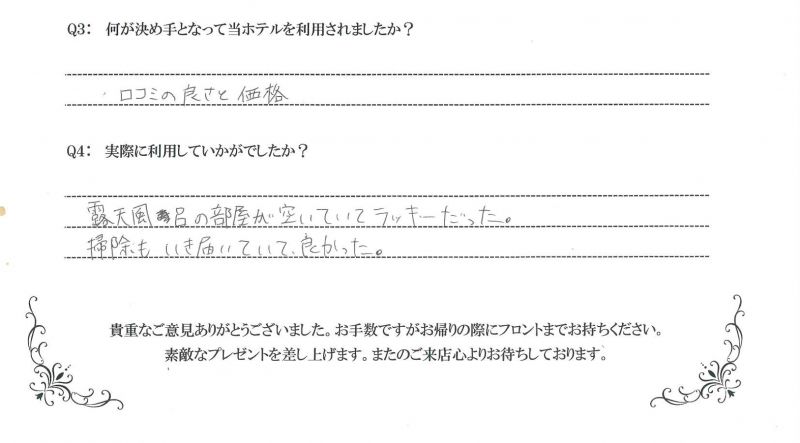 Q3： 何が決め手となって当ホテルを利用されましたか？
・口コミの良さと価格
Q4： 実際に利用していかがでしたか？
露天風呂の部屋が空いていてラッキーだった。
掃除もいき届いていて、良かった。
貴重なご意見ありがとうございました。お手数ですがお帰りの際にフロントまでお持ちください。
素敵なプレゼントを差し上げます。またのご来店心よりお待ちしております。